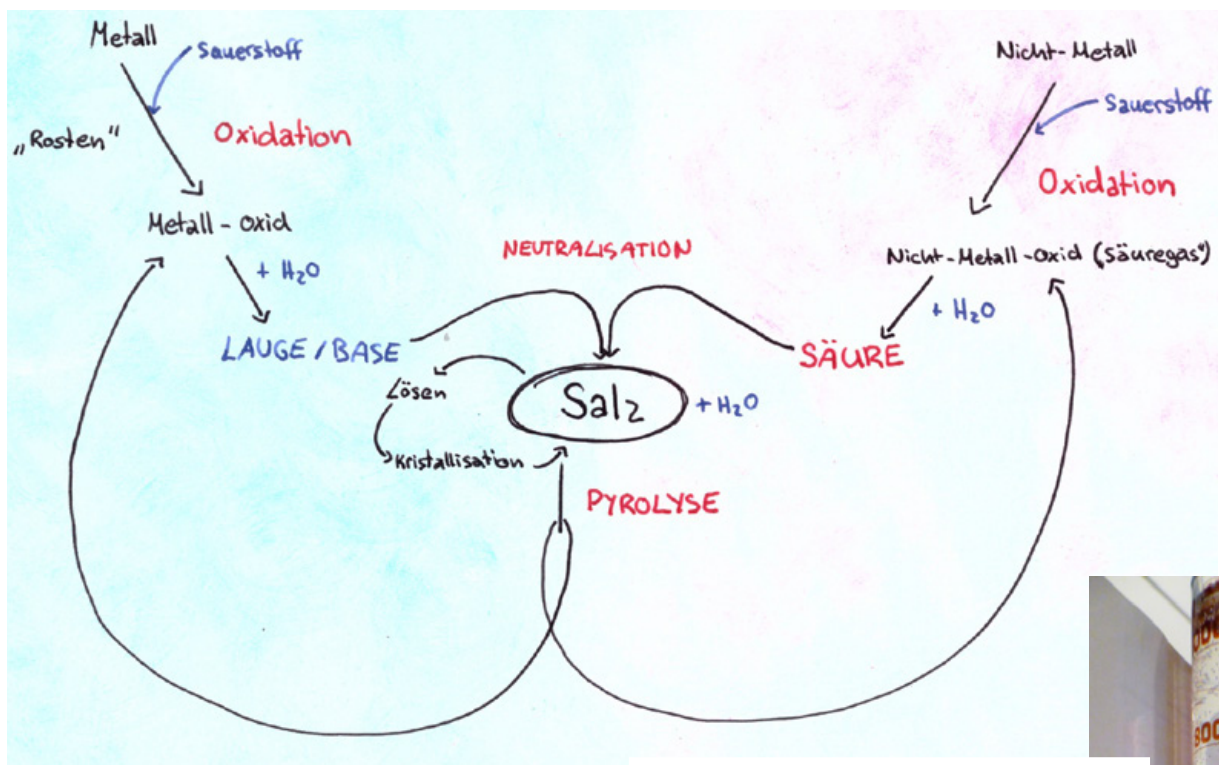 Metall
Sauerstoff
„Rosten"
Oxidation
Metall-oxid
+ H₂O
LAUGE/BASE
Lösen
Kristallisation
NEUTRALISATION
Salz
+ H₂O
PYROLYSE
Nicht-Metall
Sauerstoff
Oxidation
Nicht-Metall-Oxid („Säuregas")
+ H₂O
SÄURE